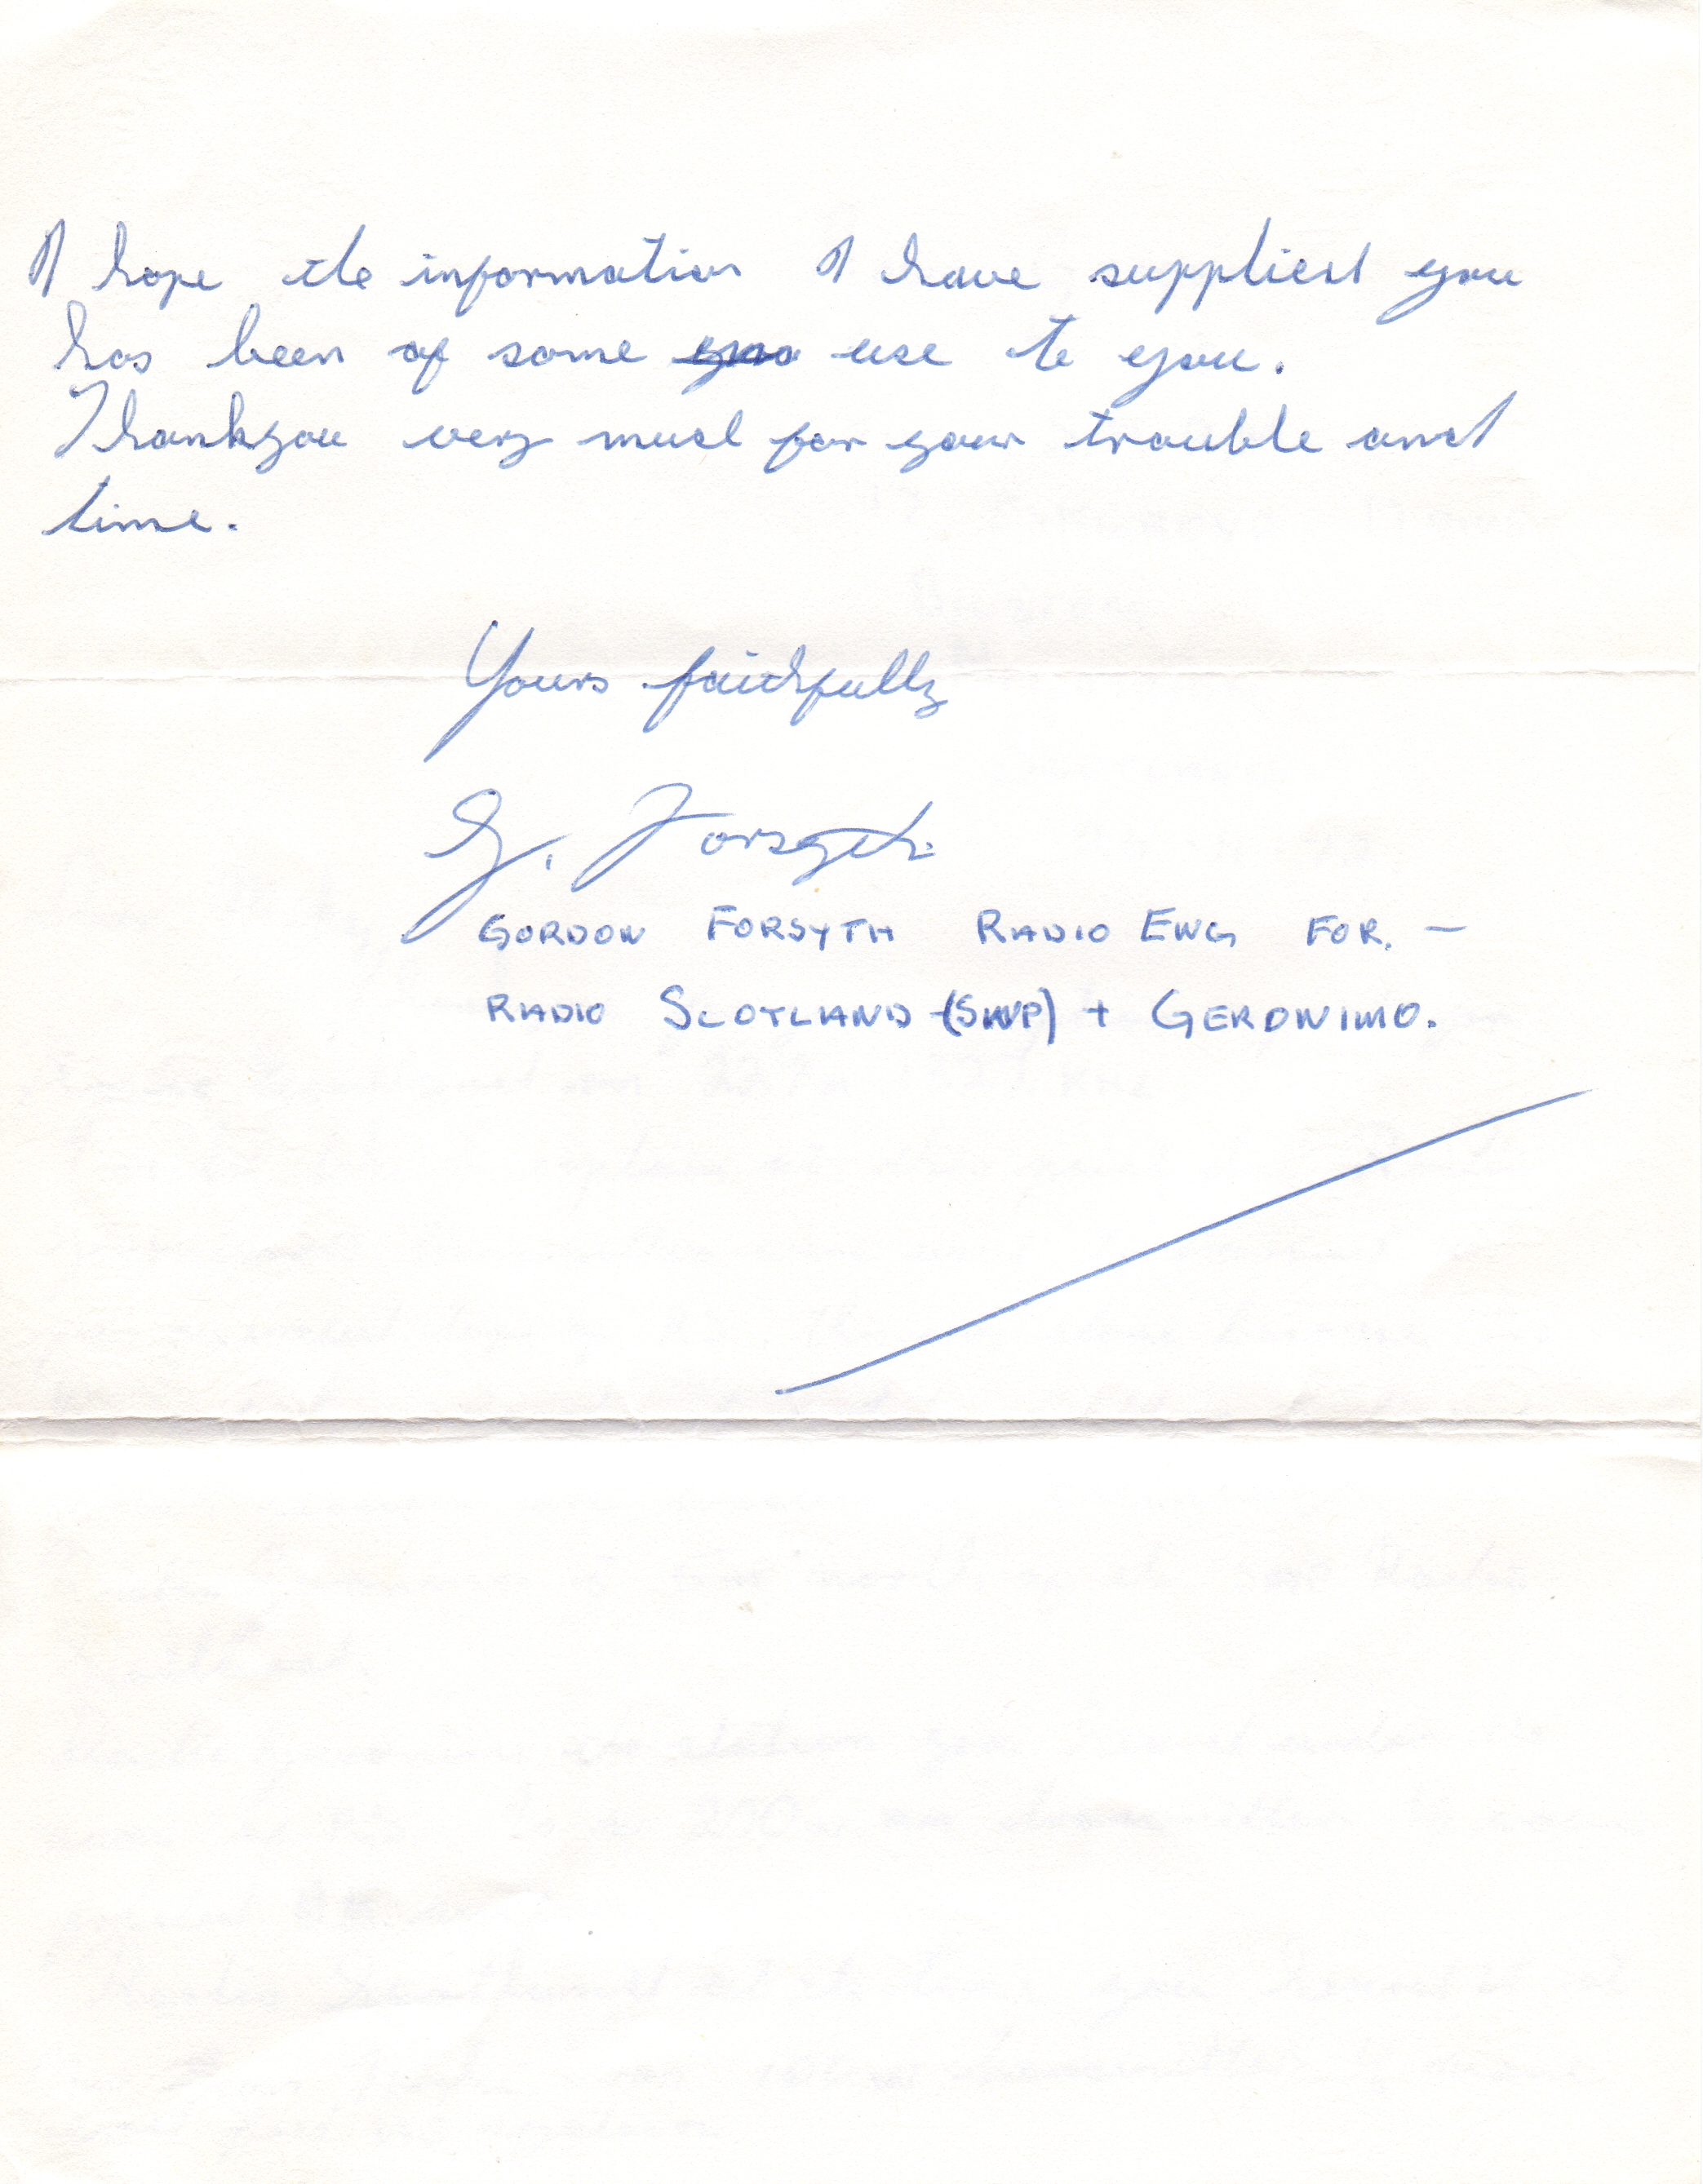 I hope the information I have supplied you
has been of some use to you.
Thankyou very much for your trouble and
time.
Yours faithfully
G. Forsyth.
GORDON FORSYTH RADIO ENG FOR. —
RADIO SCOTLAND (SWP) + GERONIMO.